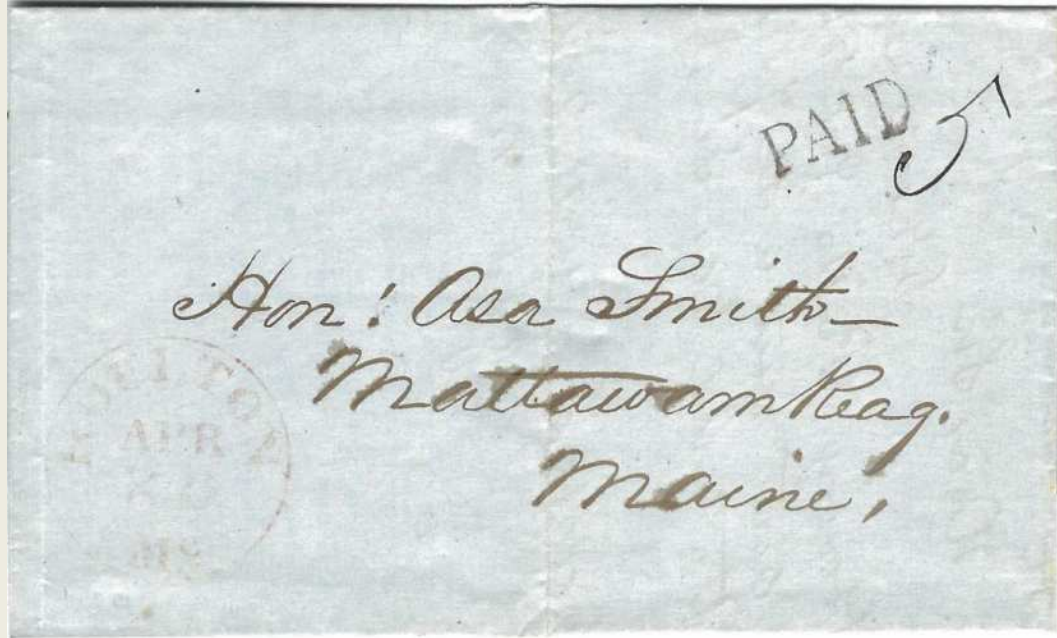 PAID 5
Hon: Asa Smith—
Mattawamkeag.
Maine,
HOULTON
APR
Me